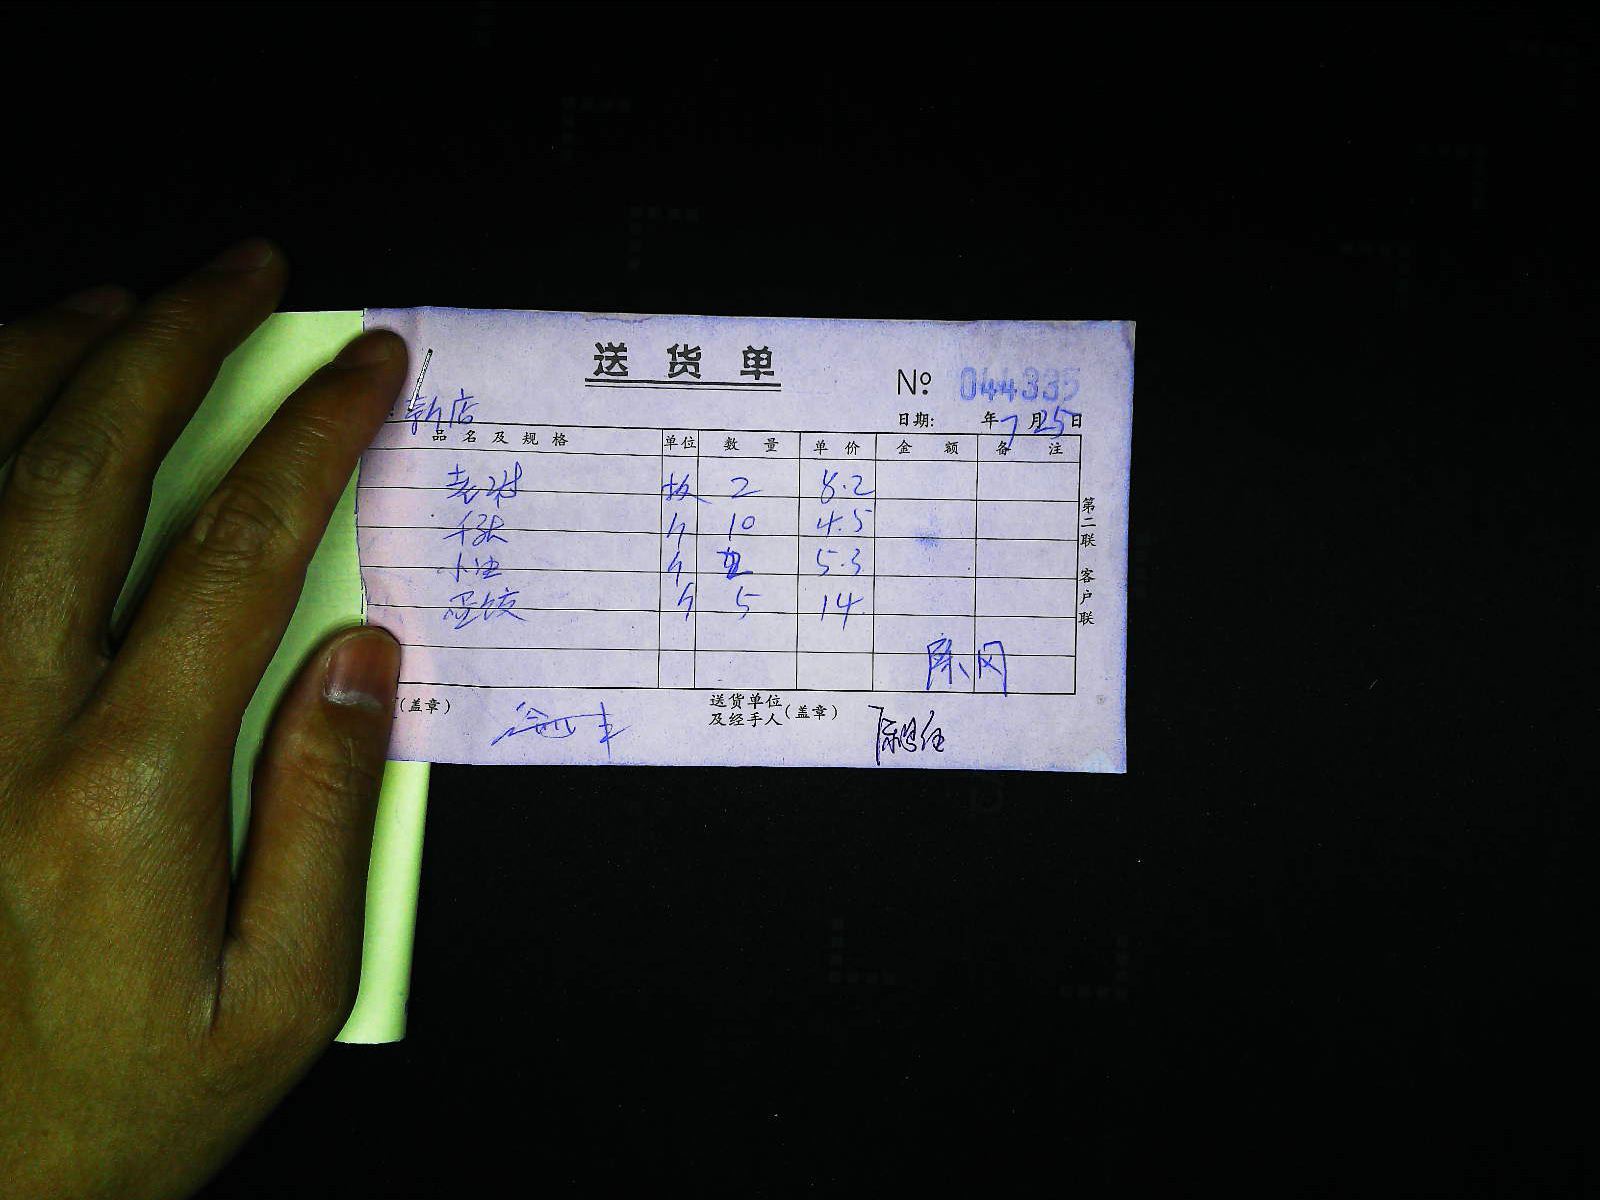 送货单
№ 044335
新店
日期: 年7月25日
品名及规格 单位 数量 单价 金额 备注
板 2 8.2
千张 斤 10 4.5
小油 斤 5.3
斤 5 14
第二联 客户联
(盖章) 送货单位及经手人(盖章)